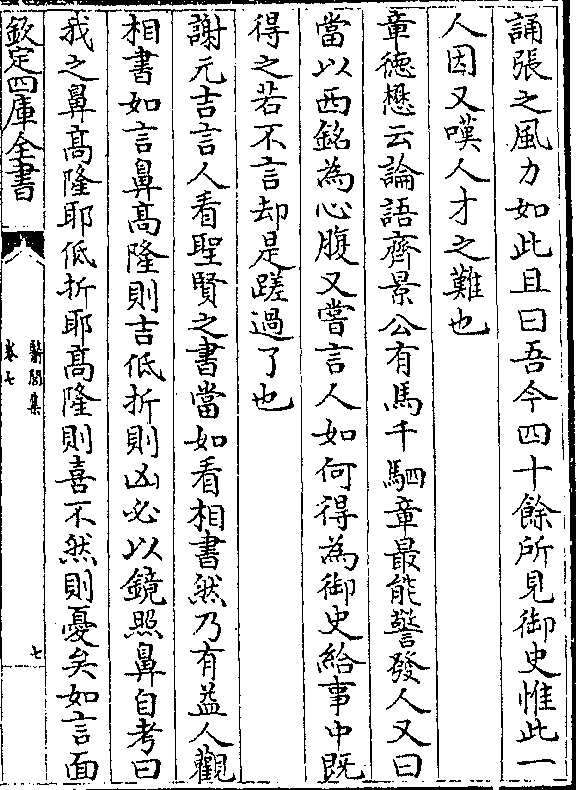 誦張之風力如此且曰吾今四十餘所見御史惟此一
人因又嘆人才之難也
章德懋云論語齊景公有馬千駟章最能警發人又曰
當以西銘為心腹又嘗言人如何得為御史給事中既
得之若不言却是蹉過了也
謝元吉言人看聖賢之書當如看相書然乃有益人觀
相書如言鼻髙隆則吉低折則凶必以鏡照鼻自考曰
我之鼻髙隆耶低折耶髙隆則喜不然則憂矣如言面
欽定四庫全書
卷七
七